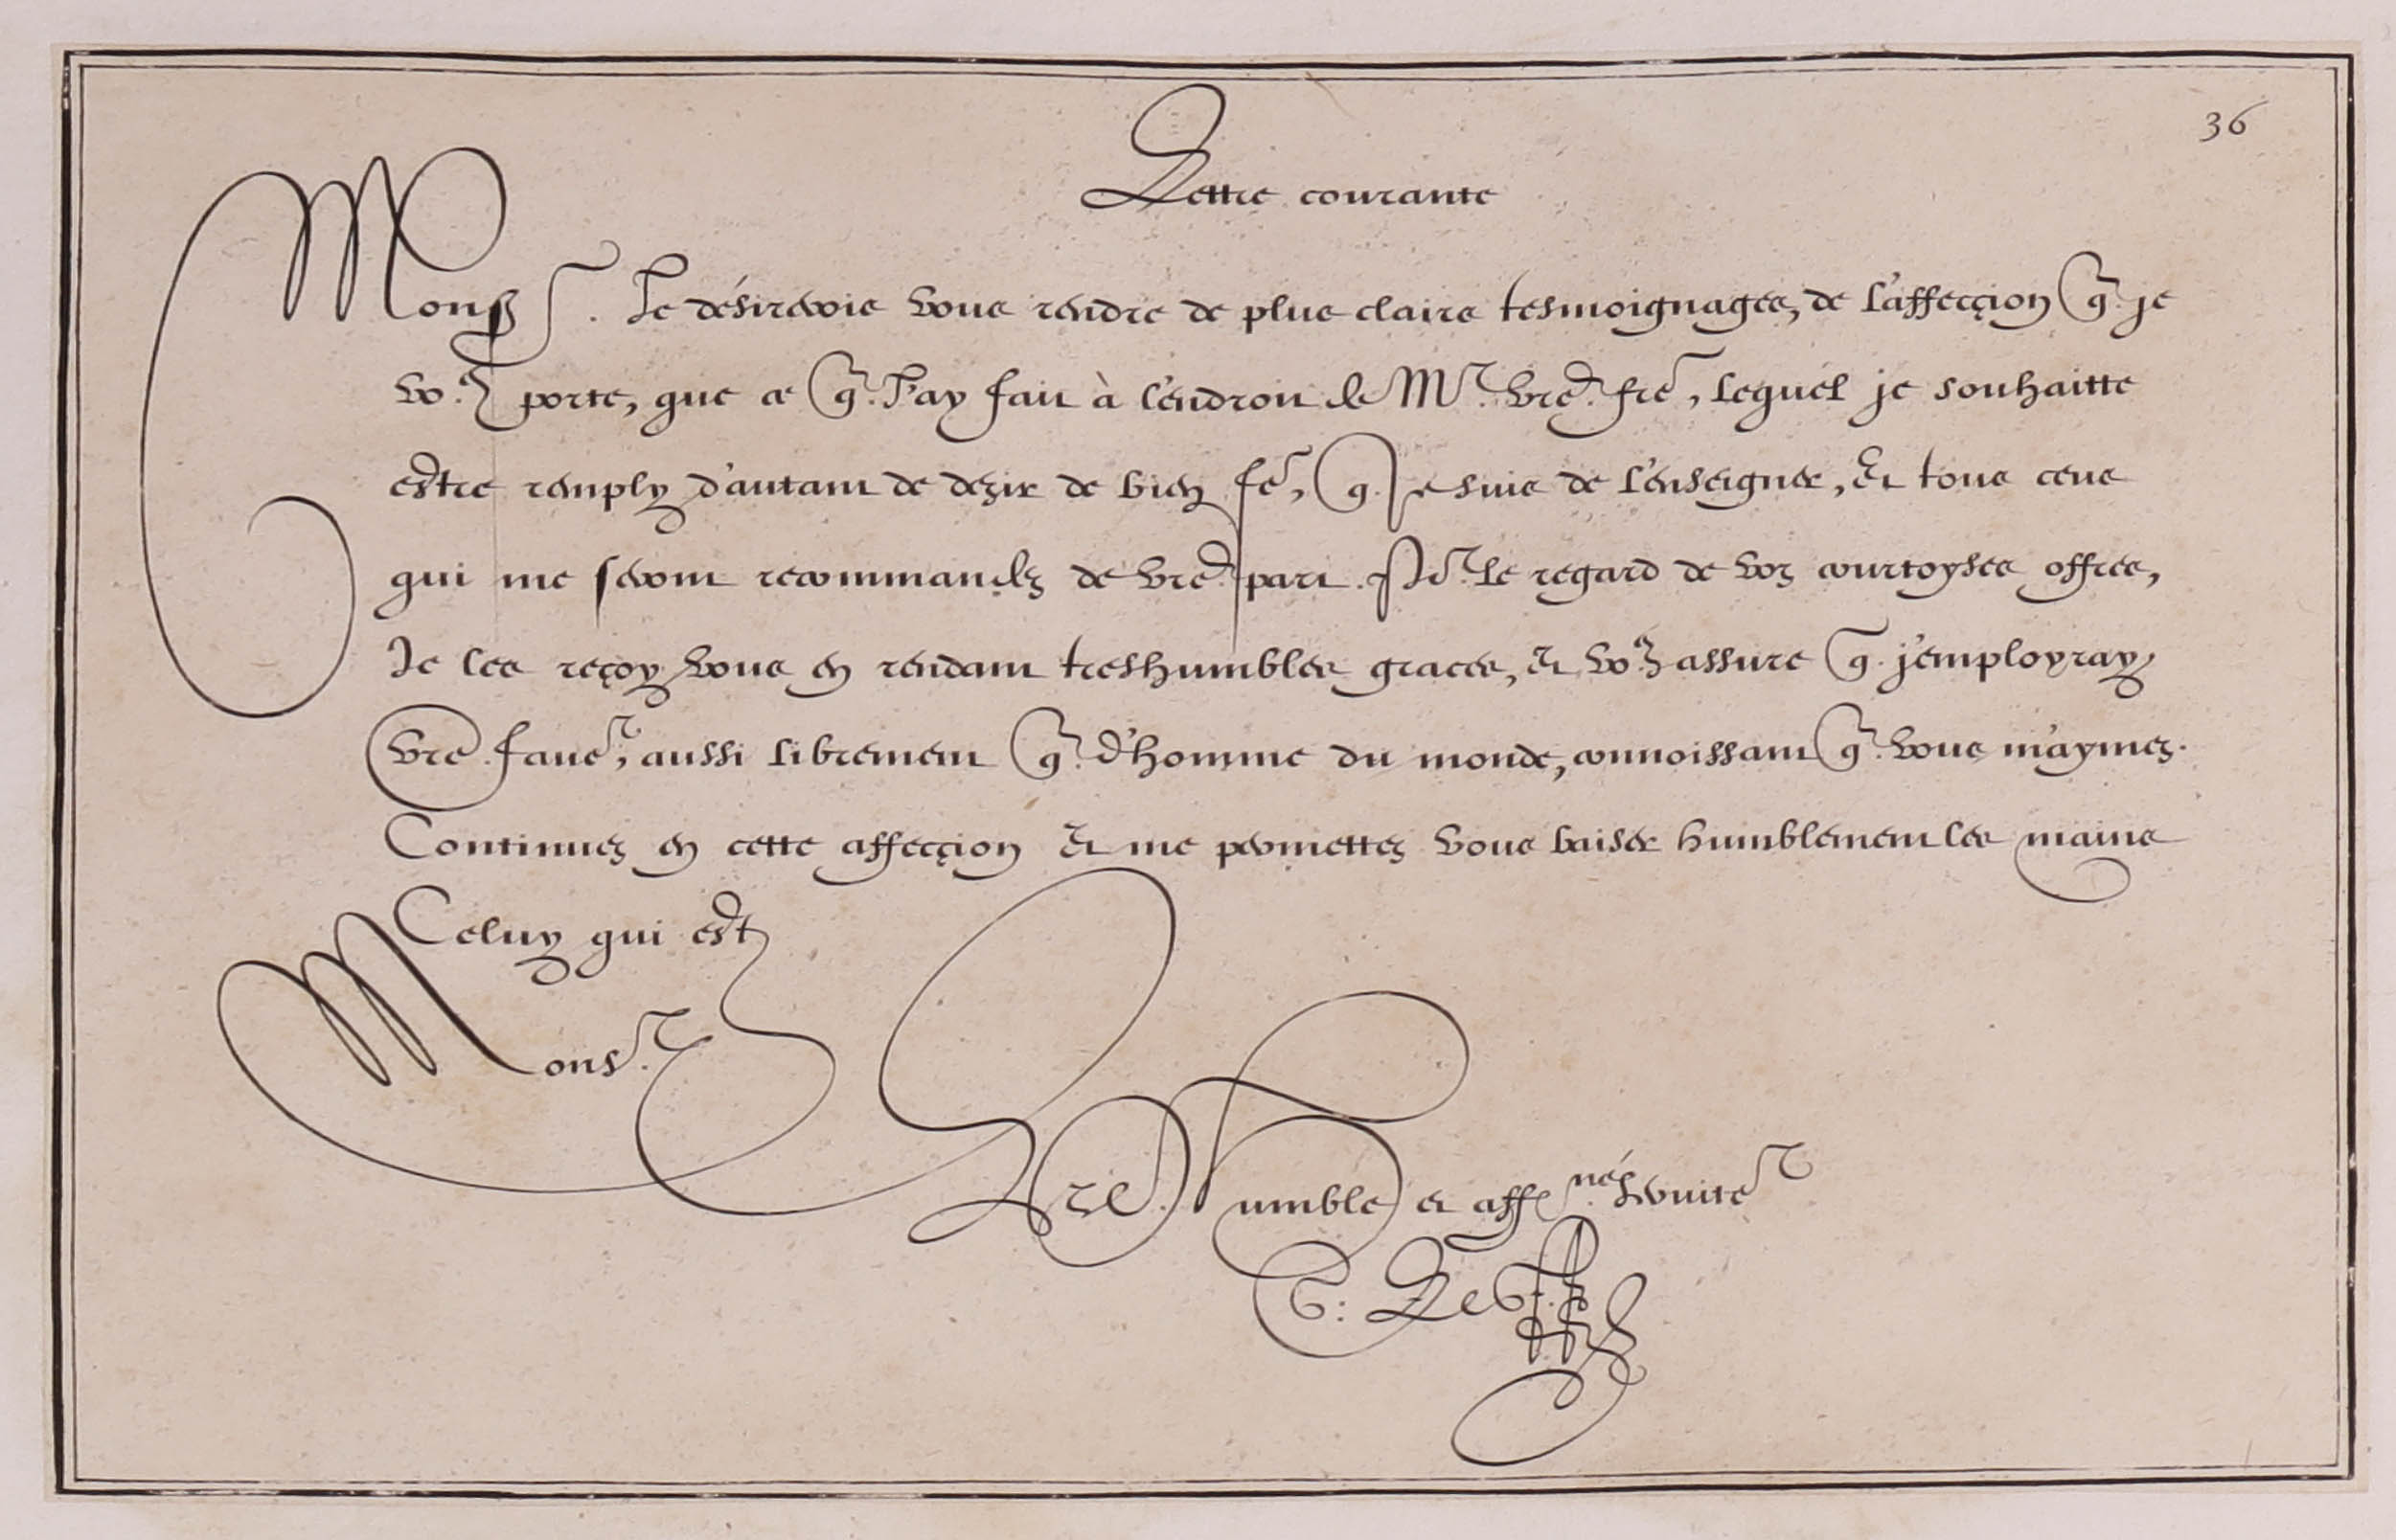 36
Lettre courante
Monsr. Je désirerois vous rendre de plus clairs tesmoignages, de l'affecçion q. je
vo.s porte, que ce q. J'ay fait à l'endroit de Mr. vre. fre, lequel je souhaitte
estre remply d'autant de dezir de bien fe, q. Je suis de l'enseigner, Et tous ceus
qui me seront recommandez de vre. part. Pr. le regard de voz courtoyses offres,
Je les reçoy vous en rendant treshumbles graces, et vo.s assure q. j'employray
vre. faver, aussi librement q. d'homme du monde, connoissant q. vous m'aymez.
Continuez en cette affecçion Et me permettez vous baiser humblement les mains
Celuy qui est
Monsr.
Vre. humble et affnés. serviter
G: Le G.